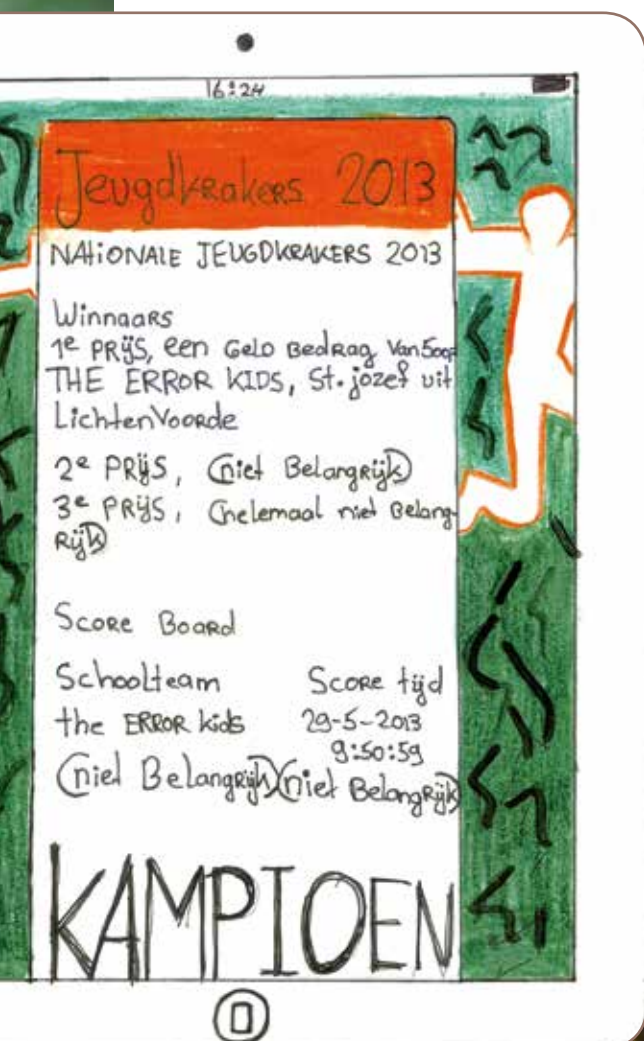 16:24
Jeugdkrakers 2013
NATIONALE JEUGDKRAKERS 2013
Winnaars
1e PRijs, een Geld Bedrag Van 500,-
THE ERROR KIDS, St. jozef uit
LichtenVoorde
2e PRijs, (niet Belangrijk)
3e PRijs, (helemaal niet Belang-
Rijk)
Score Board
Schoolteam Score tijd
the ERROR kids 29-5-2013
9:50:59
(niet Belangrijk) (niet Belangrijk)
KAMPIOEN